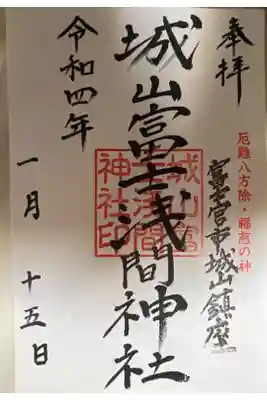 奉拝
厄難八方除・福寿の神
富士宮市城山鎮座
城山富士浅間神社
城山富士浅間神社印
令和四年
一月十五日